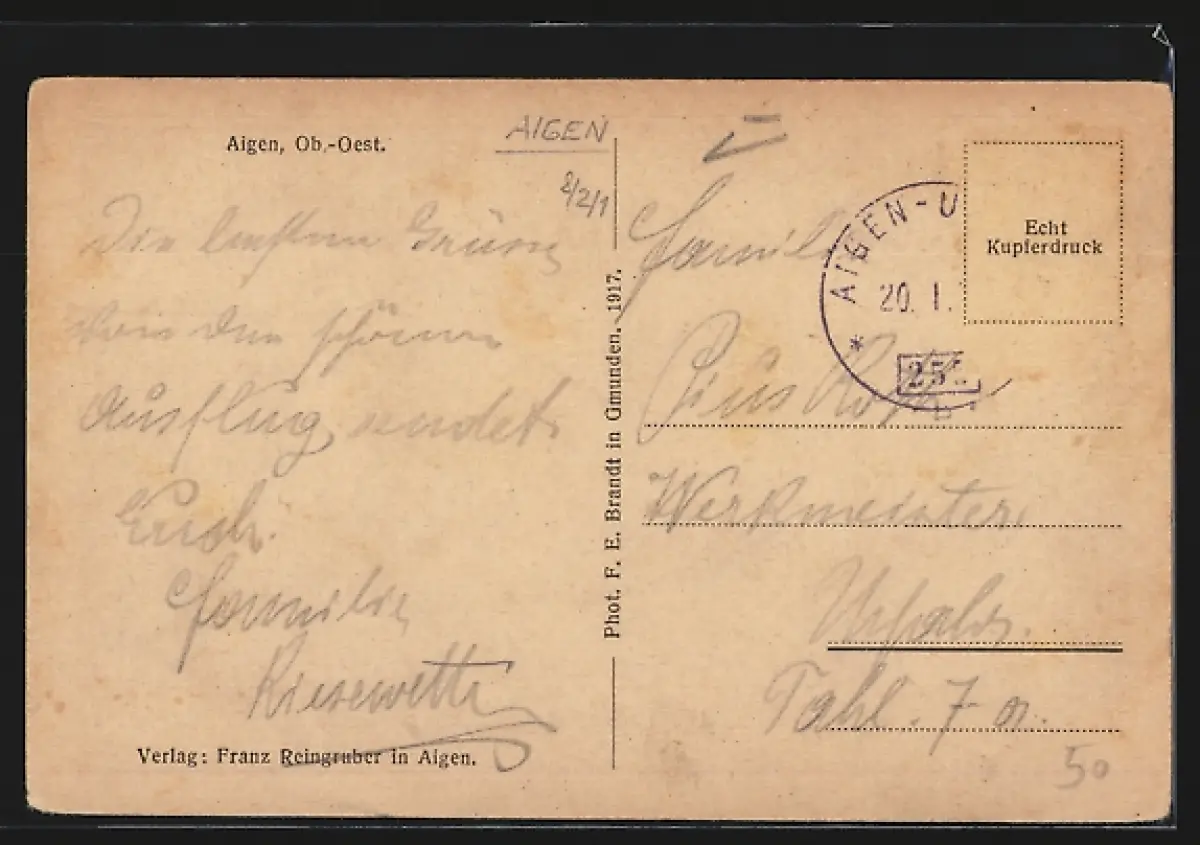 Aigen, Ob.-Oest.
AIGEN
2/2/1
Die besten Grüsse
von den schönen
Ausflug sendet
Euch.
Familie
Kiesewette
Verlag: Franz Reingruber in Aigen.
Phot. F. E. Brandt in Gmunden. 1917.
AIGEN-U
20. I.
25
Echt
Kupferdruck
Familie
Pius Roth
Werkmeister
Urfahr.
7 a.
50